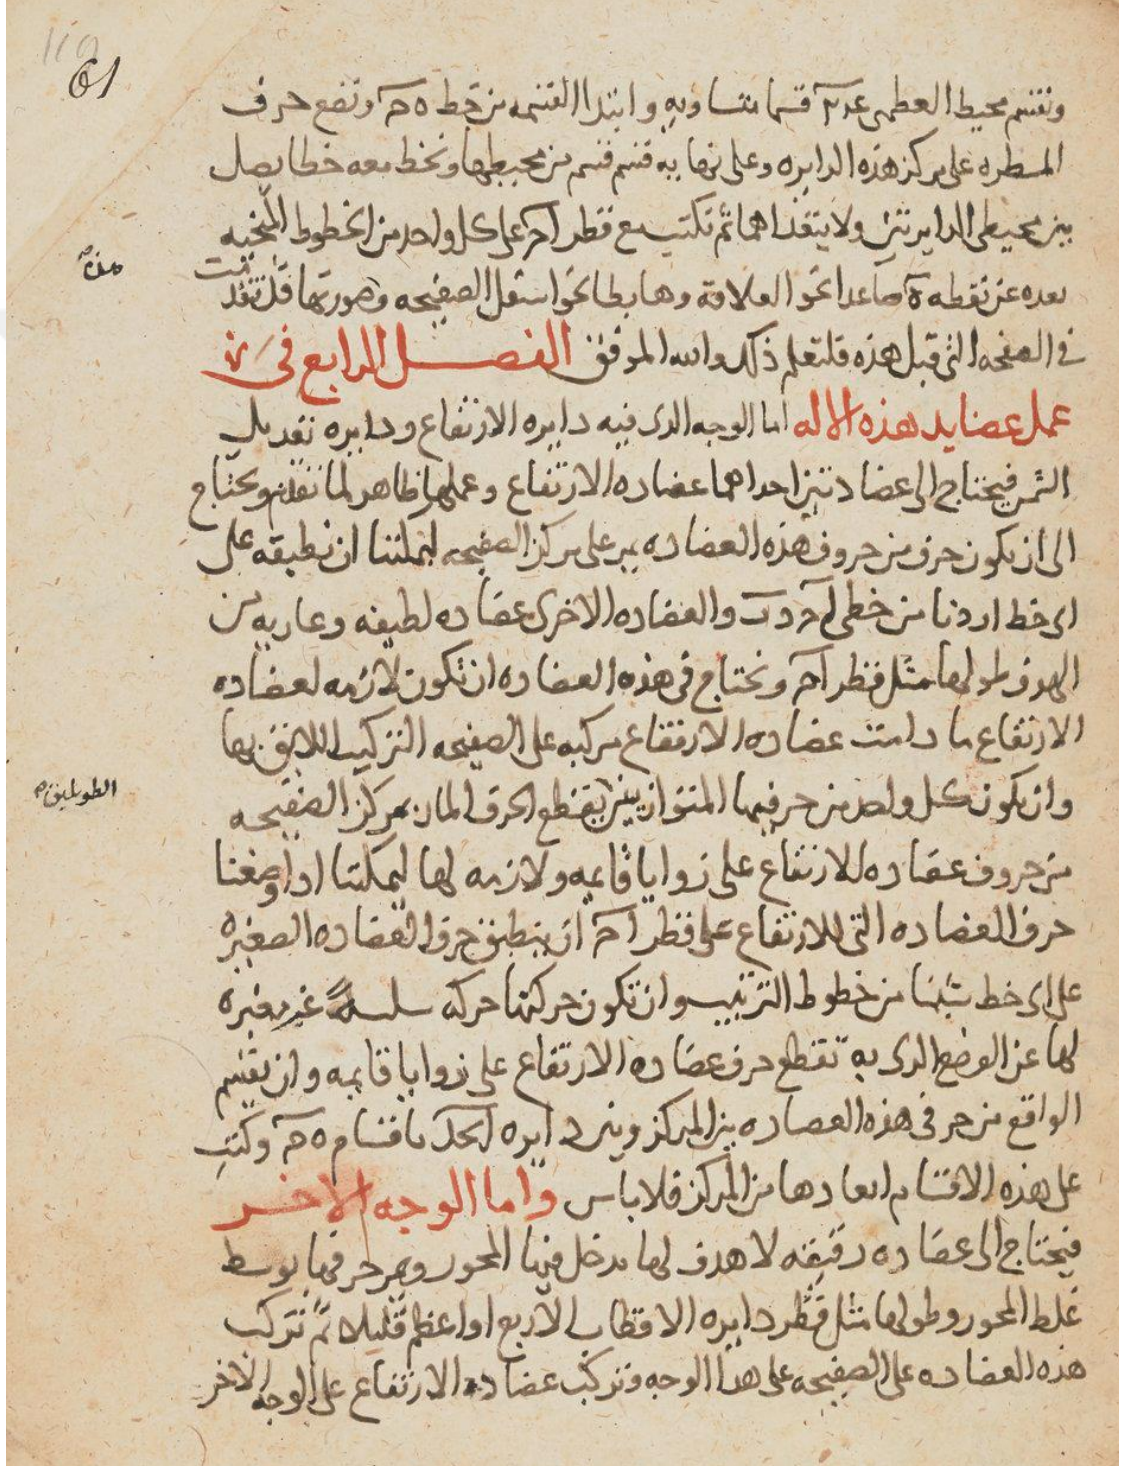 ونقسم محيط العظمى قسما متساويه وابتدا القسمه من خط ه حـ ونضع حرف
المسطره على مركز هذه الدايره وعلى نهايه قسم قسم من محيطها ونخط معه خطا يصل
بين محيطى الدايرتين ولا ينفذاهما ثم نكتب مع قطر اٮ حـ على كل واحد من الخطوط المنحنيه
بعده عن نقطه ه صاعدا نحو العلاقة وهابطا نحو اسفل الصفيحه وصورتها قد تقدمت
فى الصفحه التى قبل هذه فلتعلم ذلك والله الموفق الفصل الرابع فى
عمل عضايد هذه الاله اما الوجه الذى فيه دايره الارتفاع ودايره تعديل
الثمن فيحتاج الى عضادتين احداهما عضاده الارتفاع وعملها ظاهر لما تقدم ويحتاج
الى ان يكون حرف من حروف هذه العضاده يمر على مركز الصفيحه ليمكننا ان نطبقه على
اى خط اردنا من خطى ا حـ د ب والعضاده الاخرى عضاده لطيفه وعاريه من
الهدف طولها مثل قطر ا حـ ونحتاج فى هذه العضاده ان تكون لازمه لعضاده
الارتفاع ما دامت عضاده الارتفاع مركبه على الصفيحه التركيب اللايق بها
وان يكون كل واحد من حرفيها المتوازيين يقطع الحرف المار بمركز الصفيحه
من حروف عضاده الارتفاع على زوايا قايمه ولازمه لها ليمكننا اذا وضعنا
حرف العضاده التى للارتفاع على قطر ا حـ ان ينطبق حرف العضاده الصغيره
على اى خط شينا من خطوط الترتيب وان تكون حركتها حركه سلسه غير مغيره
لها عن الوضع الذى به تقطع حرف عضاده الارتفاع على زوايا قايمه وان يقسم
الواقع من حرفى هذه العضاده بين المركز وبين دايره باقسام ه حـ وكتب
على هذه الاقسام ابعادها من المركز فلا باس واما الوجه الاخر
فيحتاج الى عضاده رقيقه لا هدف لها يدخل فيها المحور ويمر حرفها بوسط
غلظ المحور وطولها مثل قطر دايره الاقطاب الاربع او اعظم قليلا ثم تتركب
هذه العضاده على الصفيحه على هذا الوجه وتركب عضاده الارتفاع على الوجه الاخر
الطويلين